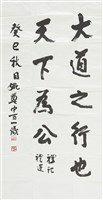 大道之行也
天下為公
禮記
禮運
癸巳秋日姚奠中百一歲